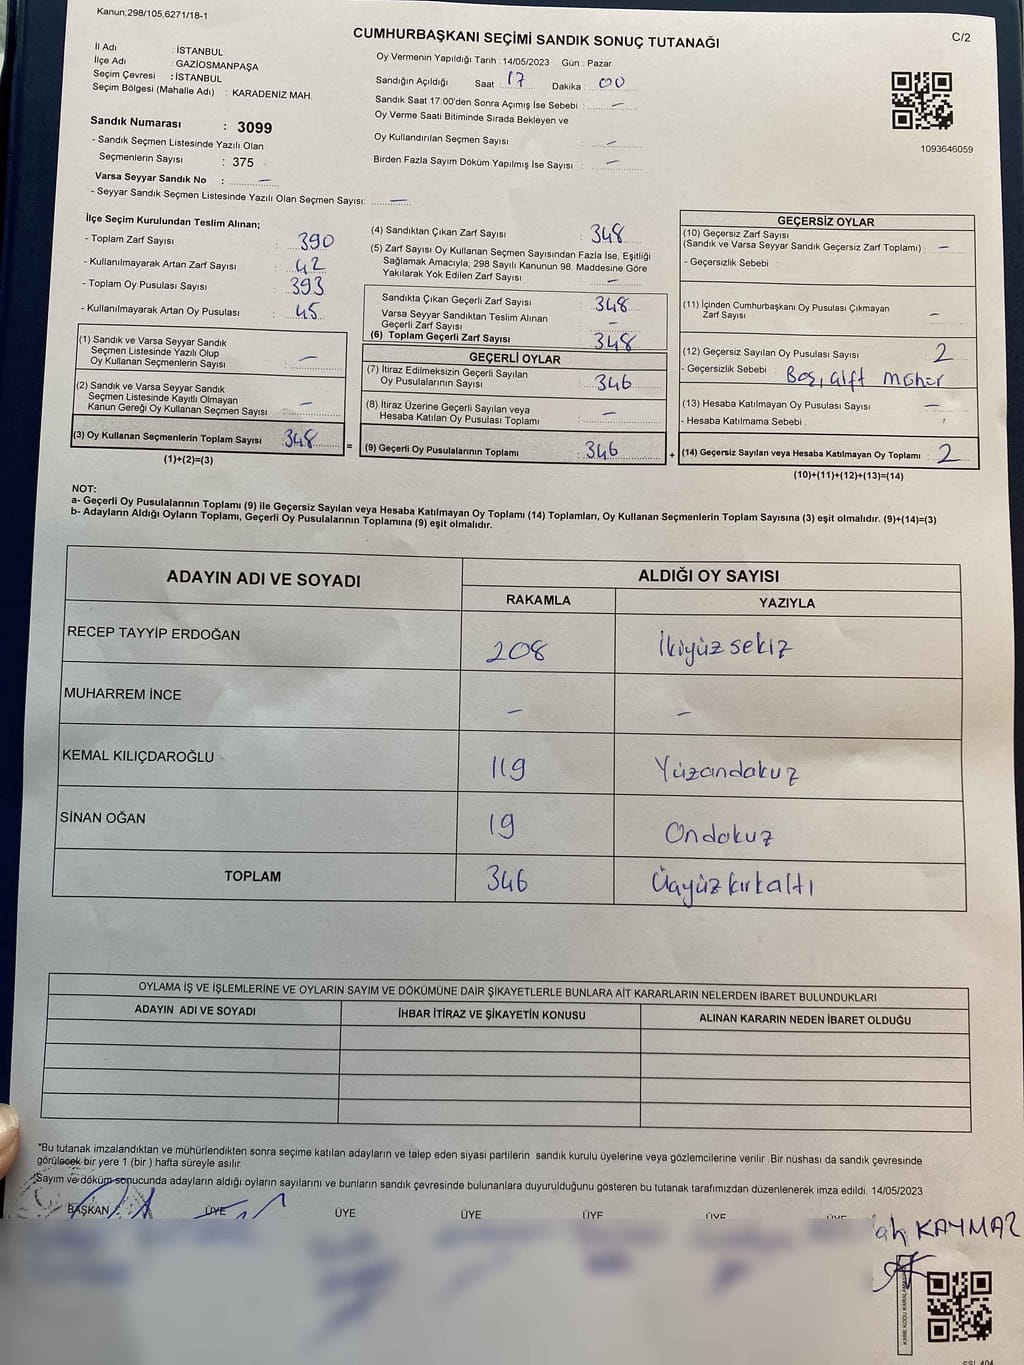 Kanun,298/105,6271/18-1
CUMHURBAŞKANI SEÇİMİ SANDIK SONUÇ TUTANAĞI
C/2
İl Adı : İSTANBUL
İlçe Adı : GAZİOSMANPAŞA
Seçim Çevresi : İSTANBUL
Seçim Bölgesi (Mahalle Adı) : KARADENİZ MAH.
Sandık Numarası : 3099
- Sandık Seçmen Listesinde Yazılı Olan
Seçmenlerin Sayısı : 375
Varsa Seyyar Sandık No : –
- Seyyar Sandık Seçmen Listesinde Yazılı Olan Seçmen Sayısı: –
Oy Vermenin Yapıldığı Tarih : 14/05/2023 Gün : Pazar
Sandığın Açıldığı Saat : 17 Dakika : 00
Sandık Saat 17:00'den Sonra Açımış İse Sebebi : –
Oy Verme Saati Bitiminde Sırada Bekleyen ve
Oy Kullandırılan Seçmen Sayısı : –
Birden Fazla Sayım Döküm Yapılmış İse Sayısı : –
1093646059
İlçe Seçim Kurulundan Teslim Alınan;
- Toplam Zarf Sayısı : 390
- Kullanılmayarak Artan Zarf Sayısı : 42
- Toplam Oy Pusulası Sayısı : 393
- Kullanılmayarak Artan Oy Pusulası : 45
(1) Sandık ve Varsa Seyyar Sandık
Seçmen Listesinde Yazılı Olup
Oy Kullanan Seçmenlerin Sayısı : –
(2) Sandık ve Varsa Seyyar Sandık
Seçmen Listesinde Kayıtlı Olmayan
Kanun Gereği Oy Kullanan Seçmen Sayısı : –
(3) Oy Kullanan Seçmenlerin Toplam Sayısı : 348 =
(1)+(2)=(3)
(4) Sandıktan Çıkan Zarf Sayısı : 348
(5) Zarf Sayısı Oy Kullanan Seçmen Sayısından Fazla İse, Eşitliği
Sağlamak Amacıyla, 298 Sayılı Kanunun 98. Maddesine Göre
Yakılarak Yok Edilen Zarf Sayısı : –
Sandıkta Çıkan Geçerli Zarf Sayısı : 348
Varsa Seyyar Sandıktan Teslim Alınan
Geçerli Zarf Sayısı : –
(6) Toplam Geçerli Zarf Sayısı : 348
GEÇERLİ OYLAR
(7) İtiraz Edilmeksizin Geçerli Sayılan
Oy Pusulalarının Sayısı : 346
(8) İtiraz Üzerine Geçerli Sayılan veya
Hesaba Katılan Oy Pusulası Toplamı : –
(9) Geçerli Oy Pusulalarının Toplamı : 346 +
GEÇERSİZ OYLAR
(10) Geçersiz Zarf Sayısı
(Sandık ve Varsa Seyyar Sandık Geçersiz Zarf Toplamı) : –
- Geçersizlik Sebebi :
(11) İçinden Cumhurbaşkanı Oy Pusulası Çıkmayan
Zarf Sayısı : –
(12) Geçersiz Sayılan Oy Pusulası Sayısı : 2
- Geçersizlik Sebebi : Boş, çift mühür
(13) Hesaba Katılmayan Oy Pusulası Sayısı : –
- Hesaba Katılmama Sebebi :
(14) Geçersiz Sayılan veya Hesaba Katılmayan Oy Toplamı : 2
(10)+(11)+(12)+(13)=(14)
NOT:
a- Geçerli Oy Pusulalarının Toplamı (9) ile Geçersiz Sayılan veya Hesaba Katılmayan Oy Toplamı (14) Toplamları, Oy Kullanan Seçmenlerin Toplam Sayısına (3) eşit olmalıdır. (9)+(14)=(3)
b- Adayların Aldığı Oyların Toplamı, Geçerli Oy Pusulalarının Toplamına (9) eşit olmalıdır.
ADAYIN ADI VE SOYADI ALDIĞI OY SAYISI
RAKAMLA YAZIYLA
RECEP TAYYİP ERDOĞAN 208 İkiyüz sekiz
MUHARREM İNCE – –
KEMAL KILIÇDAROĞLU 119 Yüzondokuz
SİNAN OĞAN 19 Ondokuz
TOPLAM 346 Üçyüz kırkaltı
OYLAMA İŞ VE İŞLEMLERİNE VE OYLARIN SAYIM VE DÖKÜMÜNE DAİR ŞİKAYETLERLE BUNLARA AİT KARARLARIN NELERDEN İBARET BULUNDUKLARI
ADAYIN ADI VE SOYADI İHBAR İTİRAZ VE ŞİKAYETİN KONUSU ALINAN KARARIN NEDEN İBARET OLDUĞU
*Bu tutanak imzalandıktan ve mühürlendikten sonra seçime katılan adayların ve talep eden siyasi partilerin sandık kurulu üyelerine veya gözlemcilerine verilir. Bir nüshası da sandık çevresinde
görülecek bir yere 1 (bir ) hafta süreyle asılır.
Sayım ve döküm sonucunda adayların aldığı oyların sayılarını ve bunların sandık çevresinde bulunanlara duyurulduğunu gösteren bu tutanak tarafımızdan düzenlenerek imza edildi. 14/05/2023
BAŞKAN ÜYE ÜYE ÜYE ÜYE ÜYE ÜYE
KAYMAZ
KARE KODU KARALAMA